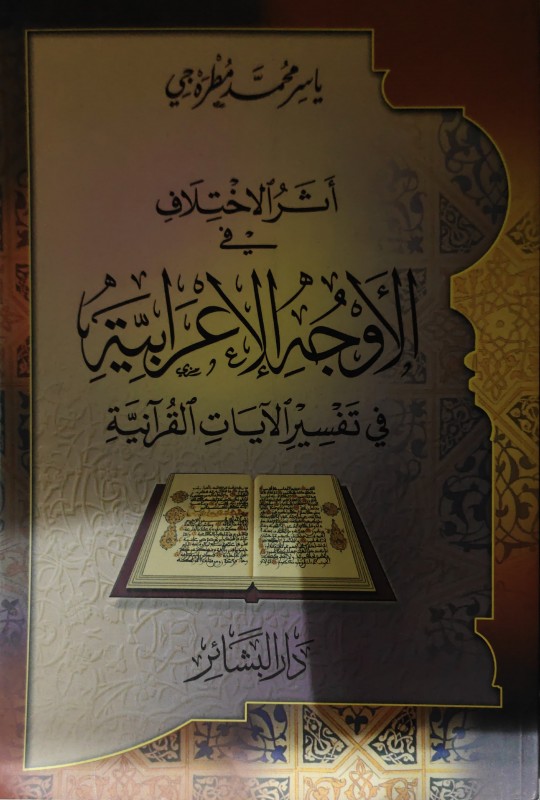 ياسر محمد مطره جي
أَثَرُ الِاخْتِلَافِ
في
الأَوْجُهِ الإِعْرَابِيَّةِ
في تَفْسِيْرِ الآيَاتِ القُرآنِيَّةِ
دَار البَشَائِر